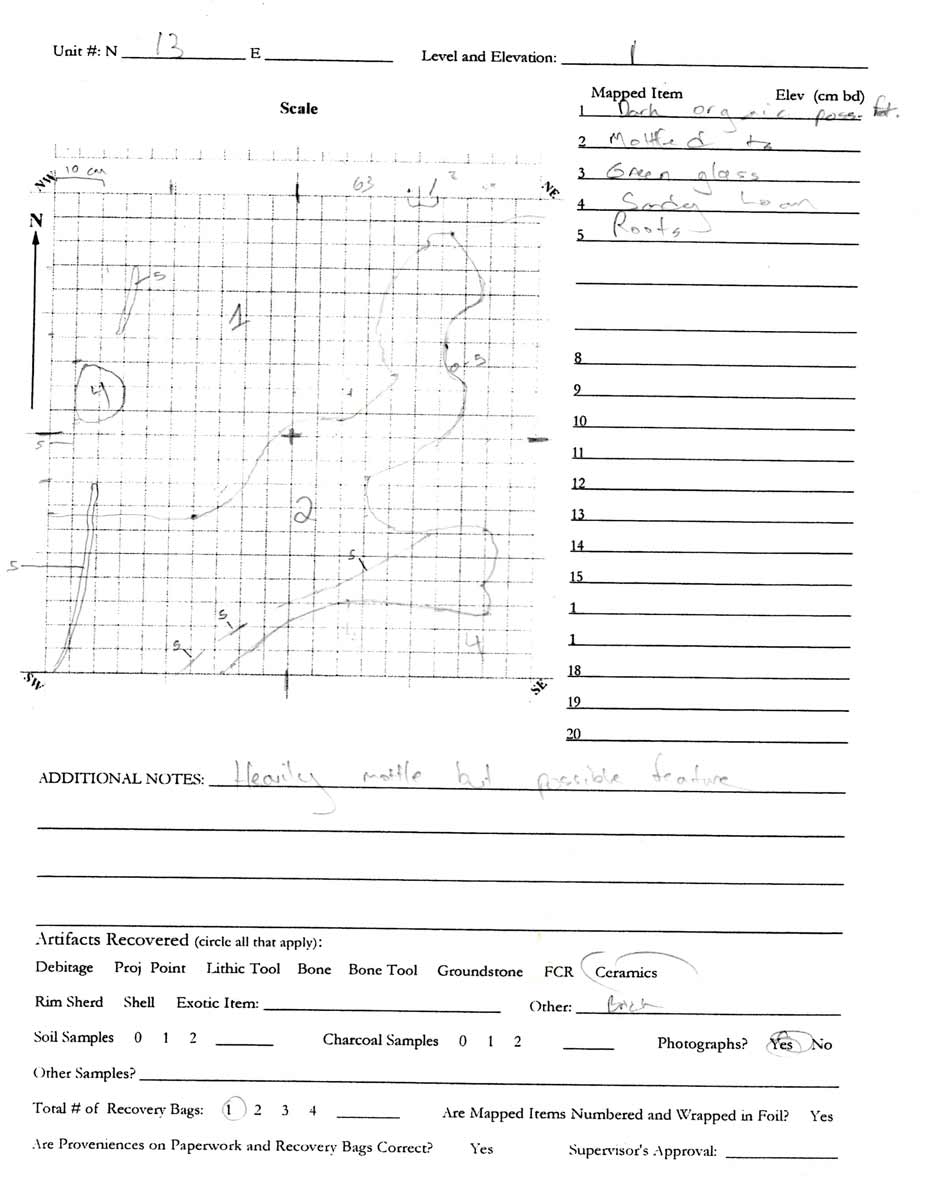 Unit #: N 13 E Level and Elevation: 1
Scale
Mapped Item Elev (cm bd)
1 Dark organic poss. ft.
2 Mottled
3 Green glass
4 Sandy Loam
5 Roots
8
9
10
11
12
13
14
15
1
1
18
19
20
NW 10 cm 63 NE
N
5
1
5
4
5
2
5
5
5
5
4
SW SE
ADDITIONAL NOTES: Heavily mottle but possible feature
Artifacts Recovered (circle all that apply):
Debitage Proj Point Lithic Tool Bone Bone Tool Groundstone FCR Ceramics
Rim Sherd Shell Exotic Item: Other: Brick
Soil Samples 0 1 2 Charcoal Samples 0 1 2 Photographs? Yes No
Other Samples?
Total # of Recovery Bags: 1 2 3 4 Are Mapped Items Numbered and Wrapped in Foil? Yes
Are Proveniences on Paperwork and Recovery Bags Correct? Yes Supervisor's Approval: